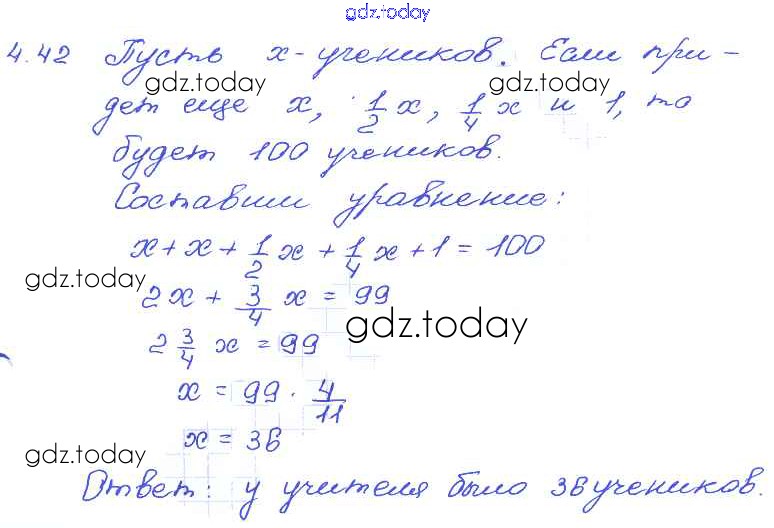 gdz.today
4.42 Пусть x - учеников. Если при-
gdz.today gdz.today
дет еще x, 1/2 x, 1/4 x и 1, то
будет 100 учеников.
Составим уравнение:
x + x + 1/2 x + 1/4 x + 1 = 100
gdz.today
2x + 3/4 x = 99
gdz.today
2 3/4 x = 99
x = 99 · 4/11
x = 36
gdz.today
Ответ: у учителя было 36 учеников.